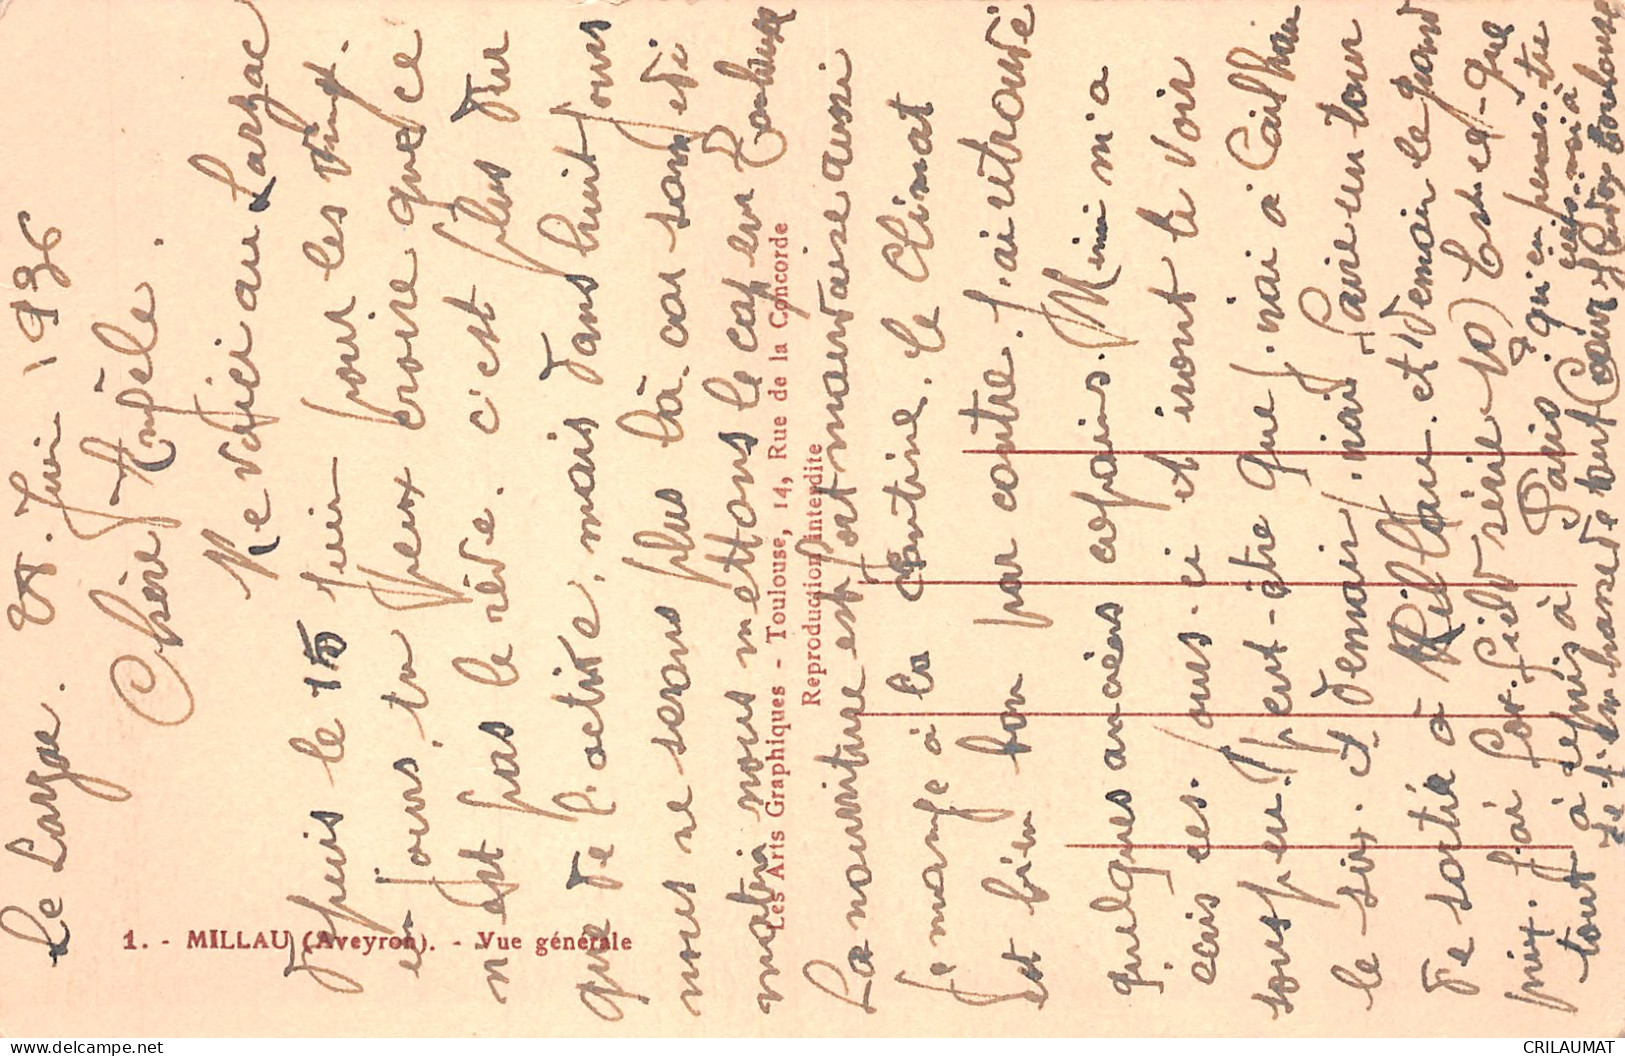 Le Larzac. 28. Juin 1936
Chère Angèle.
Me voici au Larzac
depuis le 15 juin pour les vingt.
en jours, tu peux croire que ce
n'est pas le rêve. c'est plus dur
que de l'active, mais dans huit jours
nous ne serons plus là. car samedi
matin nous mettons le cap sur Toulouse
La nourriture est fort mauvaise aussi
je mange à la cantine. le climat
est bien bon par contre. j'ai retrouvé
quelques anciens copains. Mimi m'a
ces jours-ci et iront te voir
sous peu. peut-être que j'irai à Cailhau
le six. et demain j'irai faire un tour
de sortie à Millau. et demain le grand
prix. j'ai Est-ce-que
tout à Paris. qu'en penses-tu
Je t'embrasse de tout Cœur
1. - MILLAU (Aveyron). - Vue générale
Les Arts Graphiques - Toulouse, 14, Rue de la Concorde
Reproduction interdite
CRILAUMAT